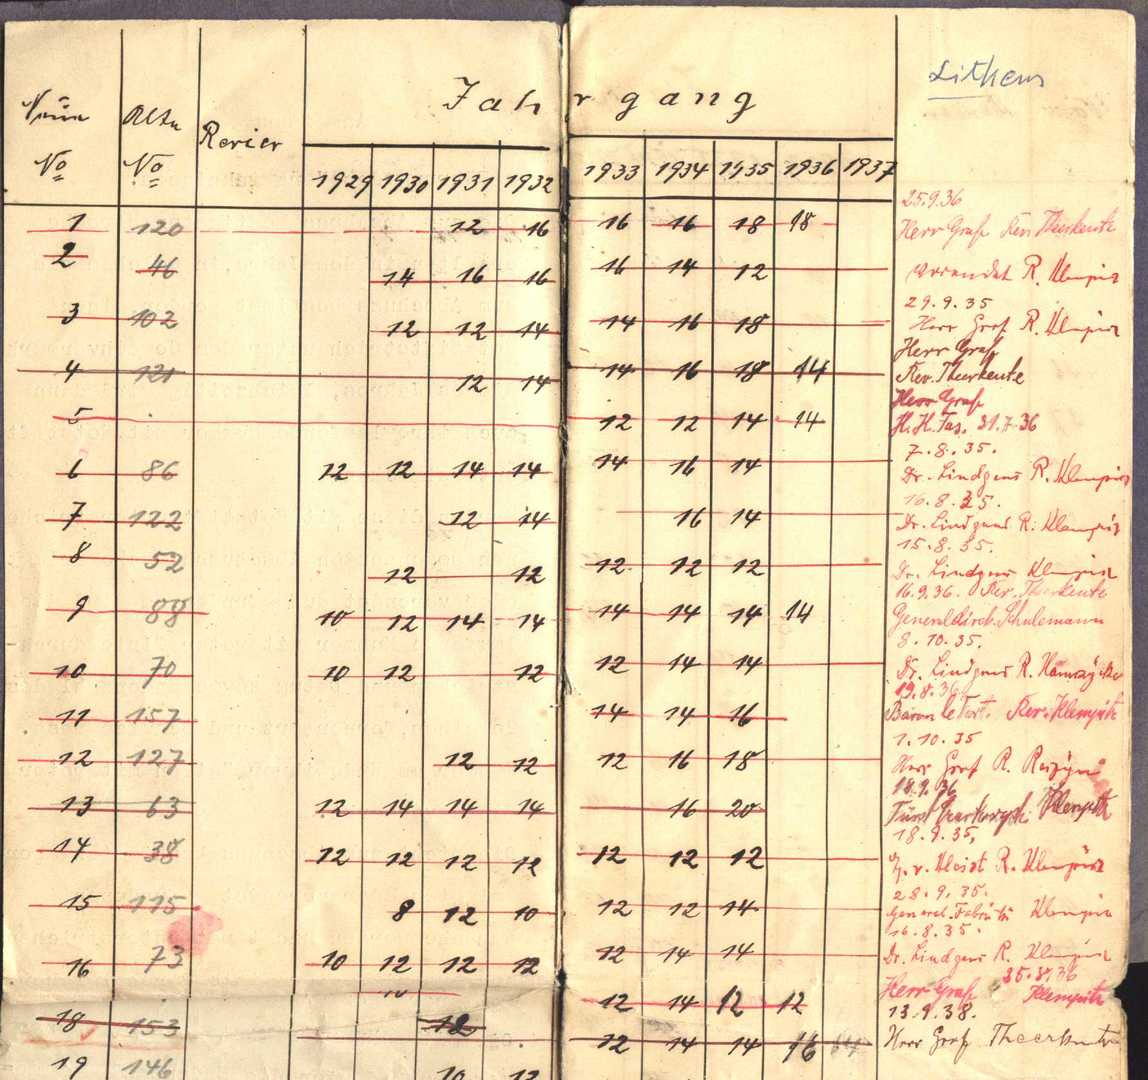 Jahrgang
Lithem
Neue No
Alte No
Revier
1929 1930 1931 1932 1933 1934 1935 1936 1937
25.9.36
1 120 12 16 16 16 18 18 Herr Graf Rev. Theerkeute
2 46 14 16 16 16 14 12 verendet R. Klempitz
29.9.35
3 102 12 12 14 14 16 18 Herr Graf R. Klempitz
Herr Graf
4 121 12 14 14 16 18 14 Rev. Theerkeute
Herr Graf
5 12 12 14 14 H. H. 31.7.36
7.8.35.
6 86 12 12 14 14 14 16 14 Dr. Lindgens R. Klempitz
16.8.35.
7 122 12 14 16 14 Dr. Lindgens R. Klempitz
15.8.35.
8 52 12 12 12 12 12 Dr. Lindgens Klempitz
16.9.36. Rev. Theerkeute
9 88 10 12 14 14 14 14 14 14 Generaldirek. Schulemann
8.10.35.
10 70 10 12 12 12 14 14 Dr. Lindgens R.
19.8.36
11 157 14 14 16 Baron le Fort. Rev. Klempitz
1.10.35
12 127 12 12 12 16 18 Herr Graf R.
18.9.36
13 63 12 14 14 14 16 20 Fürst Klempitz
18.9.35,
14 38 12 12 12 12 12 12 12 v. Kleist R. Klempitz
28.9.35.
15 115 8 12 10 12 12 14 General. Klempitz
16.8.35.
16 73 10 12 12 12 12 14 14 Dr. Lindgens R. Klempitz
12 14 12 12 Herr Graf Klempitz
13.9.38.
18 153 12 12 14 14 16 14 Herr Graf Theerkeute
19 146 10 12